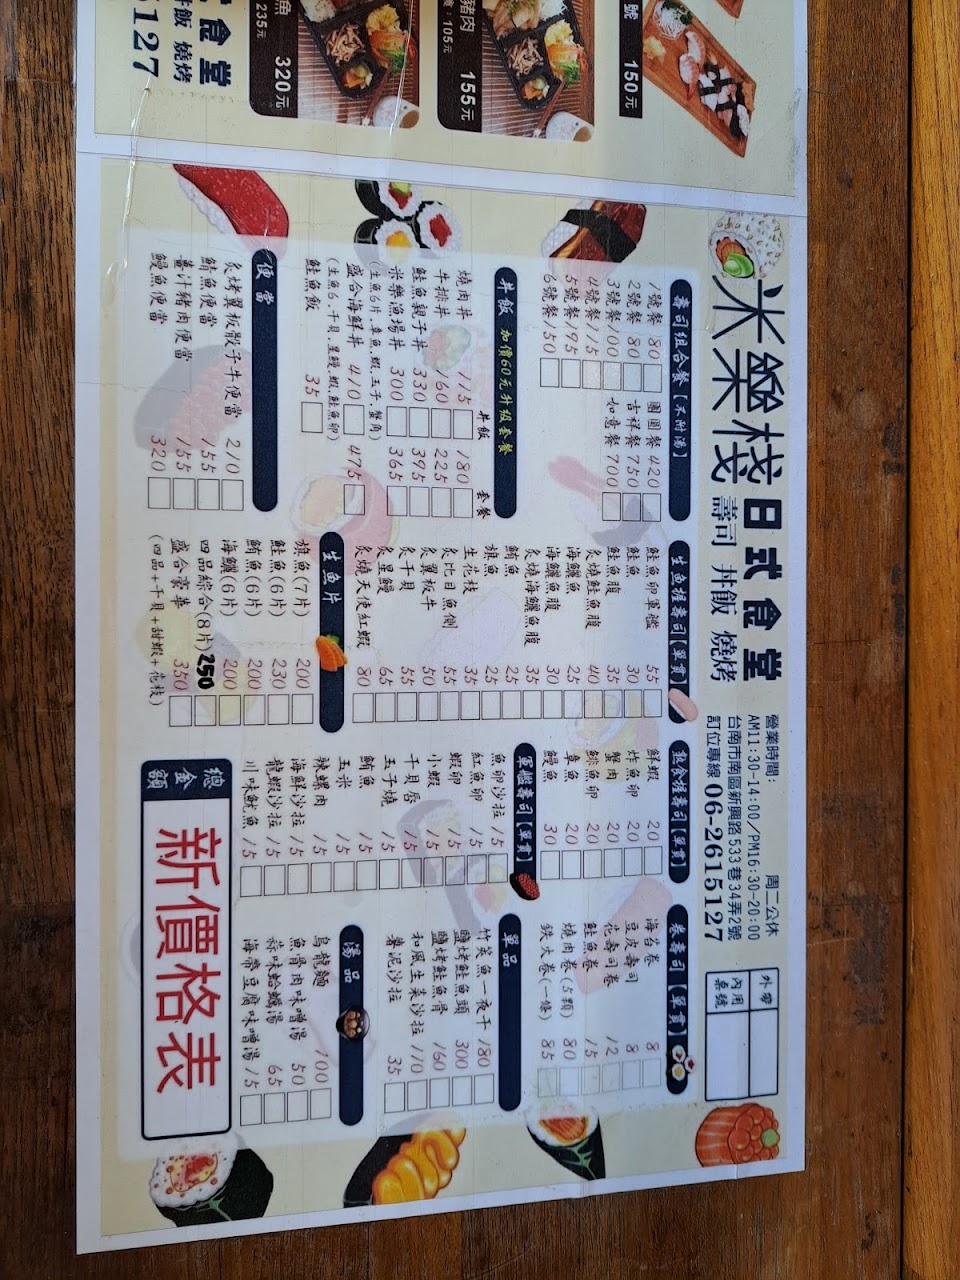 號
150元
豬肉
105元
155元
魚
235元
320元
食堂
丼飯 燒烤
5127
米樂棧日式食堂
壽司 丼飯 燒烤
營業時間: 周二公休
AM11:30-14:00/PM16:30-20:00
台南市南區新興路533巷34弄2號
訂位專線 06-2615127
外帶
內用
桌號
壽司組合餐【不附湯】
1號餐 80
2號餐 80
3號餐 100
4號餐 115
5號餐 195
6號餐 150
團圓餐 420
吉祥餐 750
如意餐 700
丼飯 加價60元升級套餐
丼飯 套餐
燒肉丼 115 180
牛排丼 160 225
鮭魚親子丼 330 395
米樂漁場丼 300 365
(生魚6片,章魚,蝦,玉子,蟹肉)
盛合海鮮丼 410 475
(生魚6,干貝,星鰻,蝦,鮭魚卵)
鮭魚飯 35
便當
炙烤翼板骰子牛便當 210
鯖魚便當 155
薑汁豬肉便當 155
鰻魚便當 320
生魚握壽司【單貫】
鮭魚卵軍艦 55
鮭魚 30
鮭魚腹 35
炙燒鮭魚腹 40
海鱺魚 25
海鱺魚腹 30
炙燒海鱺魚腹 35
鮪魚 25
旗魚 25
生花枝 35
炙比目魚側 55
炙翼板牛 50
炙干貝 55
炙星鰻 65
炙燒天使紅蝦 80
生魚片
旗魚(7片) 200
鮭魚(6片) 230
鮪魚(6片) 200
海鱺(6片) 200
四品綜合(8片) 250
盛合豪華 350
(四品+干貝+甜蝦+花枝)
熟食握壽司【單貫】
鮮蝦 20
炸魚卵 20
蟹肉 20
鯡魚卵 20
章魚 20
鰻魚 30
軍艦壽司【單貫】
魚卵沙拉 15
紅魚卵 15
蝦卵 15
小蝦 15
干貝唇 15
玉子燒 15
鮪魚 15
玉米 15
辣螺肉 15
海鮮沙拉 15
龍蝦沙拉 15
川味魷魚 15
卷壽司【單貫】
海苔卷 8
豆皮壽司 8
花壽司卷 12
鮭魚卷 15
燒肉卷(5顆) 80
鐵火卷(一條) 85
單品
竹筴魚一夜干 180
鹽烤鮭魚頭 300
鹽烤鮭魚骨 160
和風生菜沙拉 110
薯泥沙拉 35
湯品
烏龍麵 100
魚骨肉味噌湯 50
蒜味蛤蠣湯 65
海帶豆腐味噌湯 15
總金額
新價格表